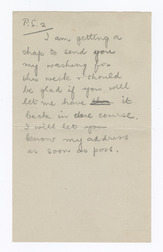 P.S. 2
I am getting a
chap to send you
my washing for
this week. I should
be glad if you will
let me have it
back in due course.
I will let you
know my address
as soon as poss.